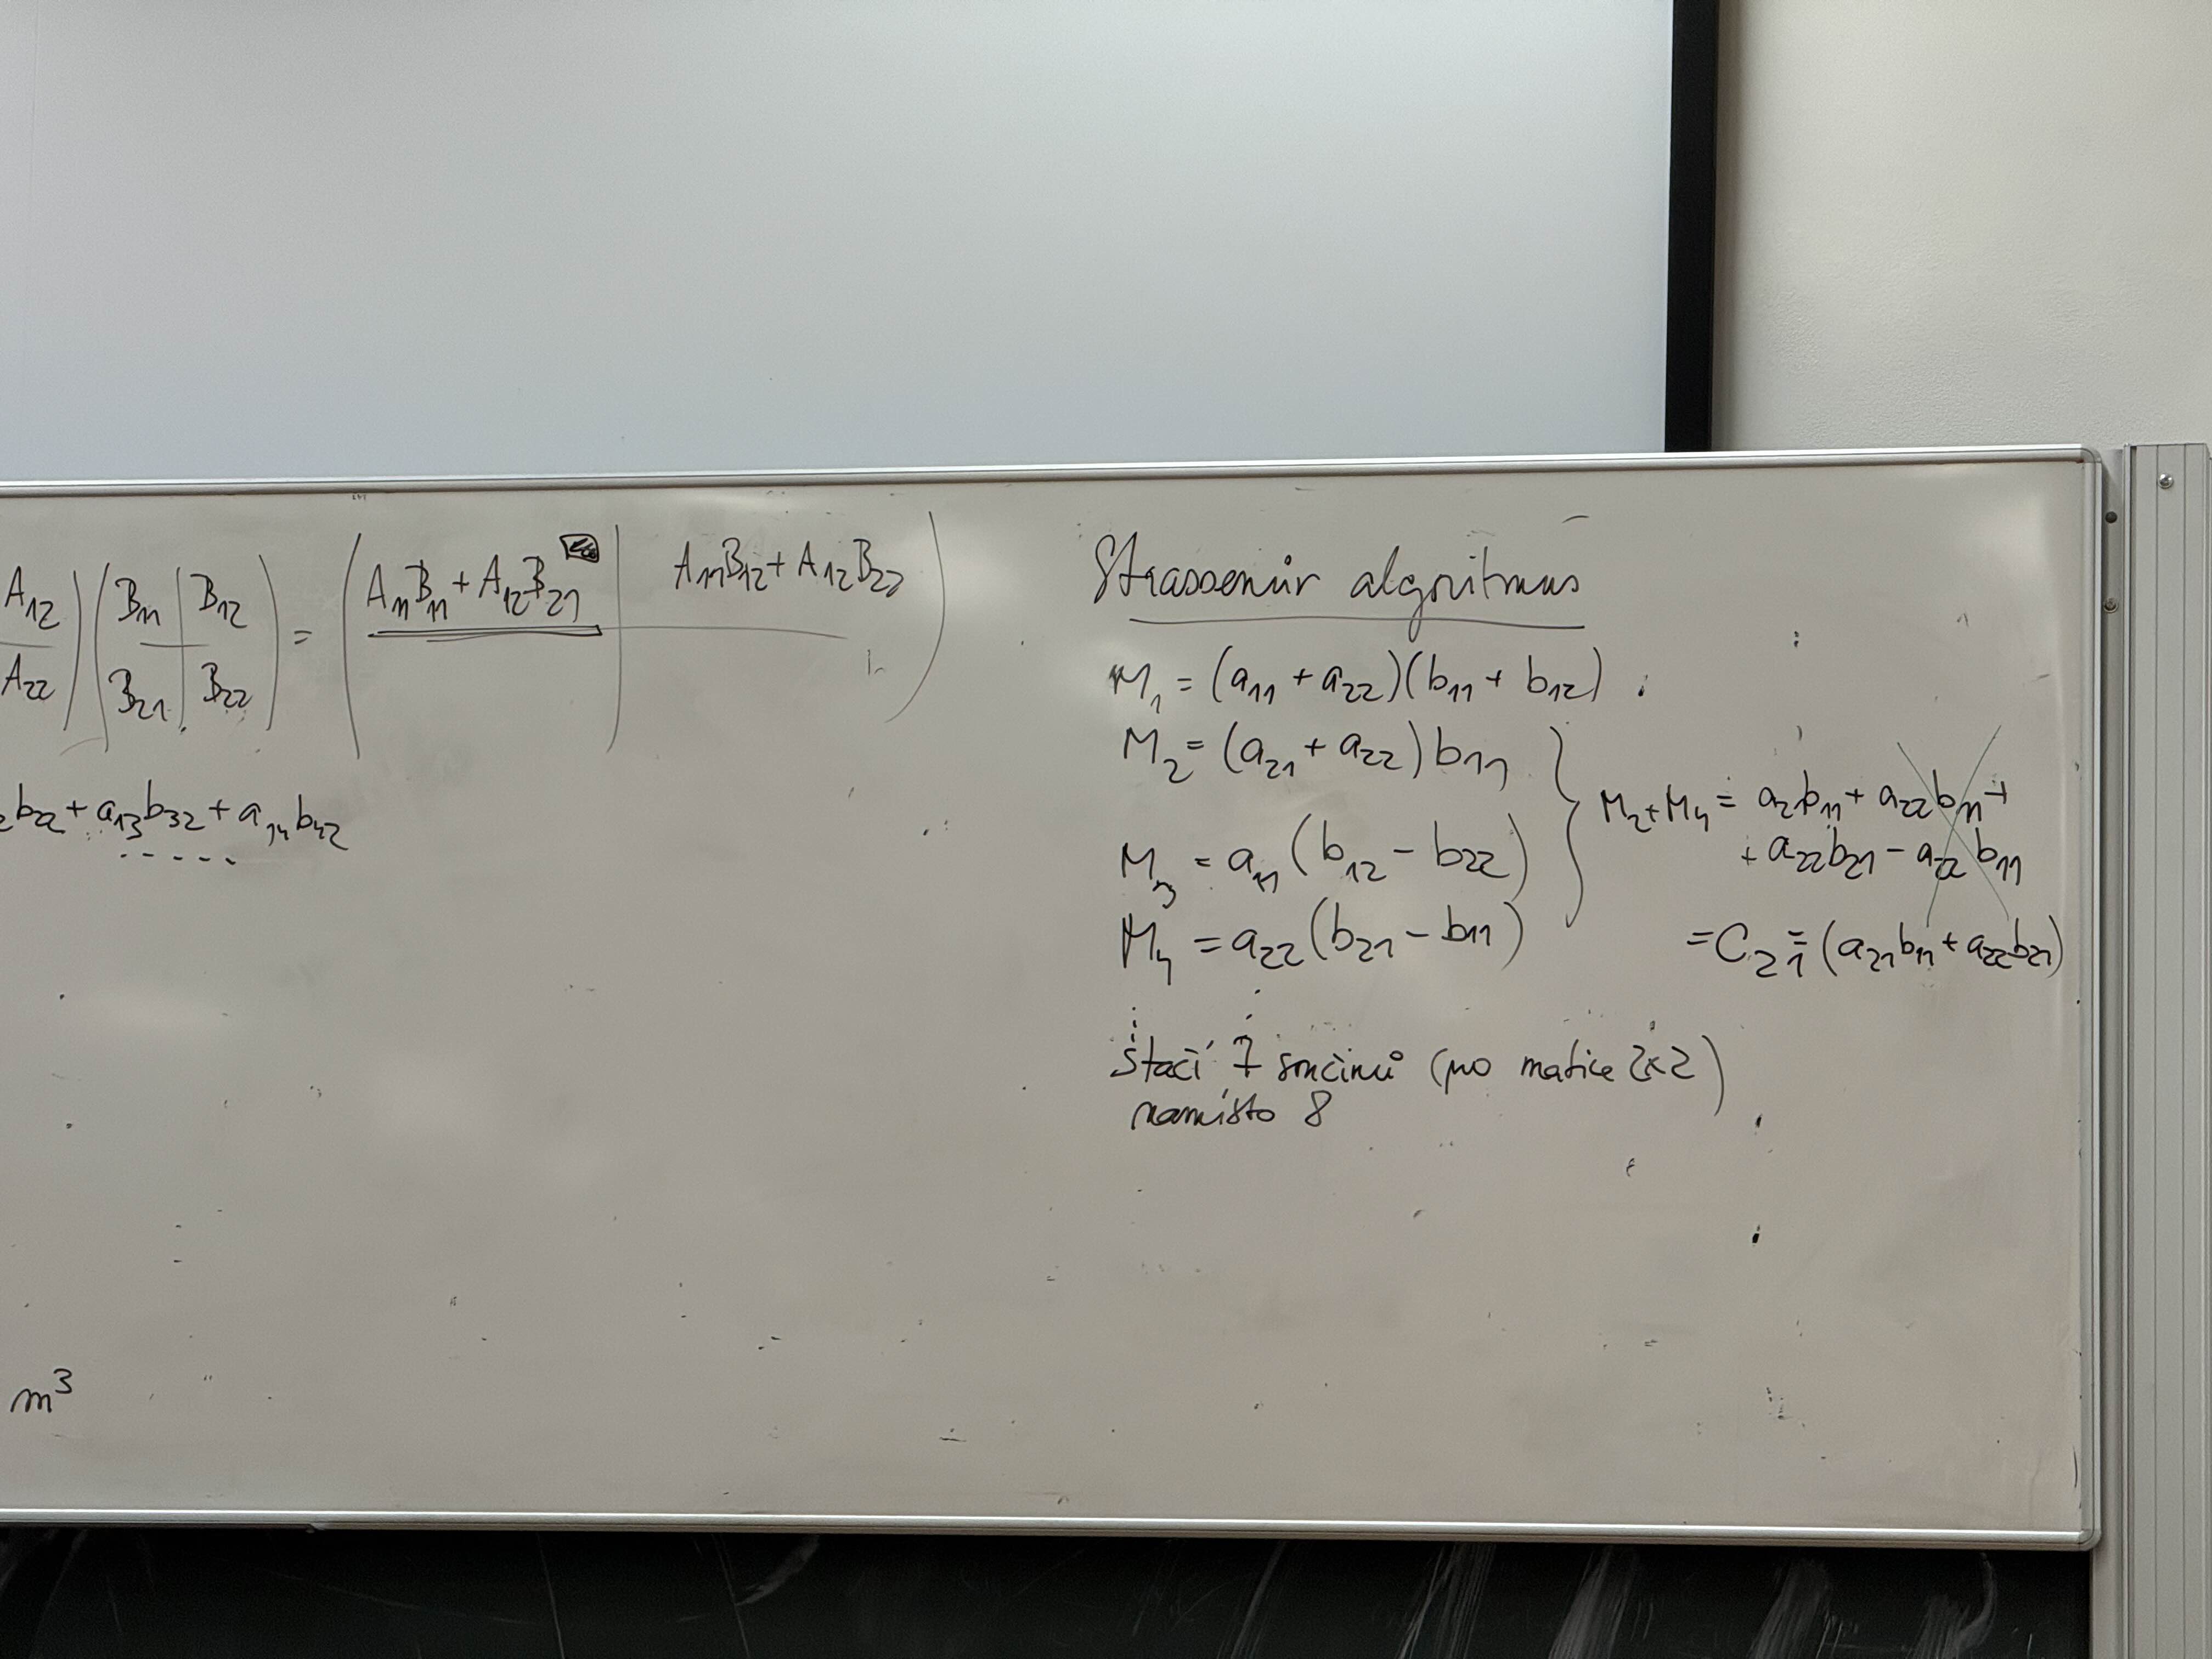 A₁₂ | B₁₁ | B₁₂ = A₁₁B₁₁ + A₁₂B₂₁ | A₁₁B₁₂ + A₁₂B₂₂
A₂₂ | B₂₁ | B₂₂
b₂₂ + a₁₃b₃₂ + a₁₄b₄₂
m³
Strassenův algoritmus
M₁ = (a₁₁ + a₂₂)(b₁₁ + b₁₂)
M₂ = (a₂₁ + a₂₂) b₁₁
M₃ = a₁₁ (b₁₂ - b₂₂)
M₄ = a₂₂ (b₂₁ - b₁₁)
M₂+M₄ = a₂₁b₁₁ + a₂₂b₁₁ +
+ a₂₂b₂₁ - a₂₂b₁₁
= C₂₁ = (a₂₁b₁₁ + a₂₂b₂₁)
Stačí 7 součinů (pro matice 2x2)
namísto 8